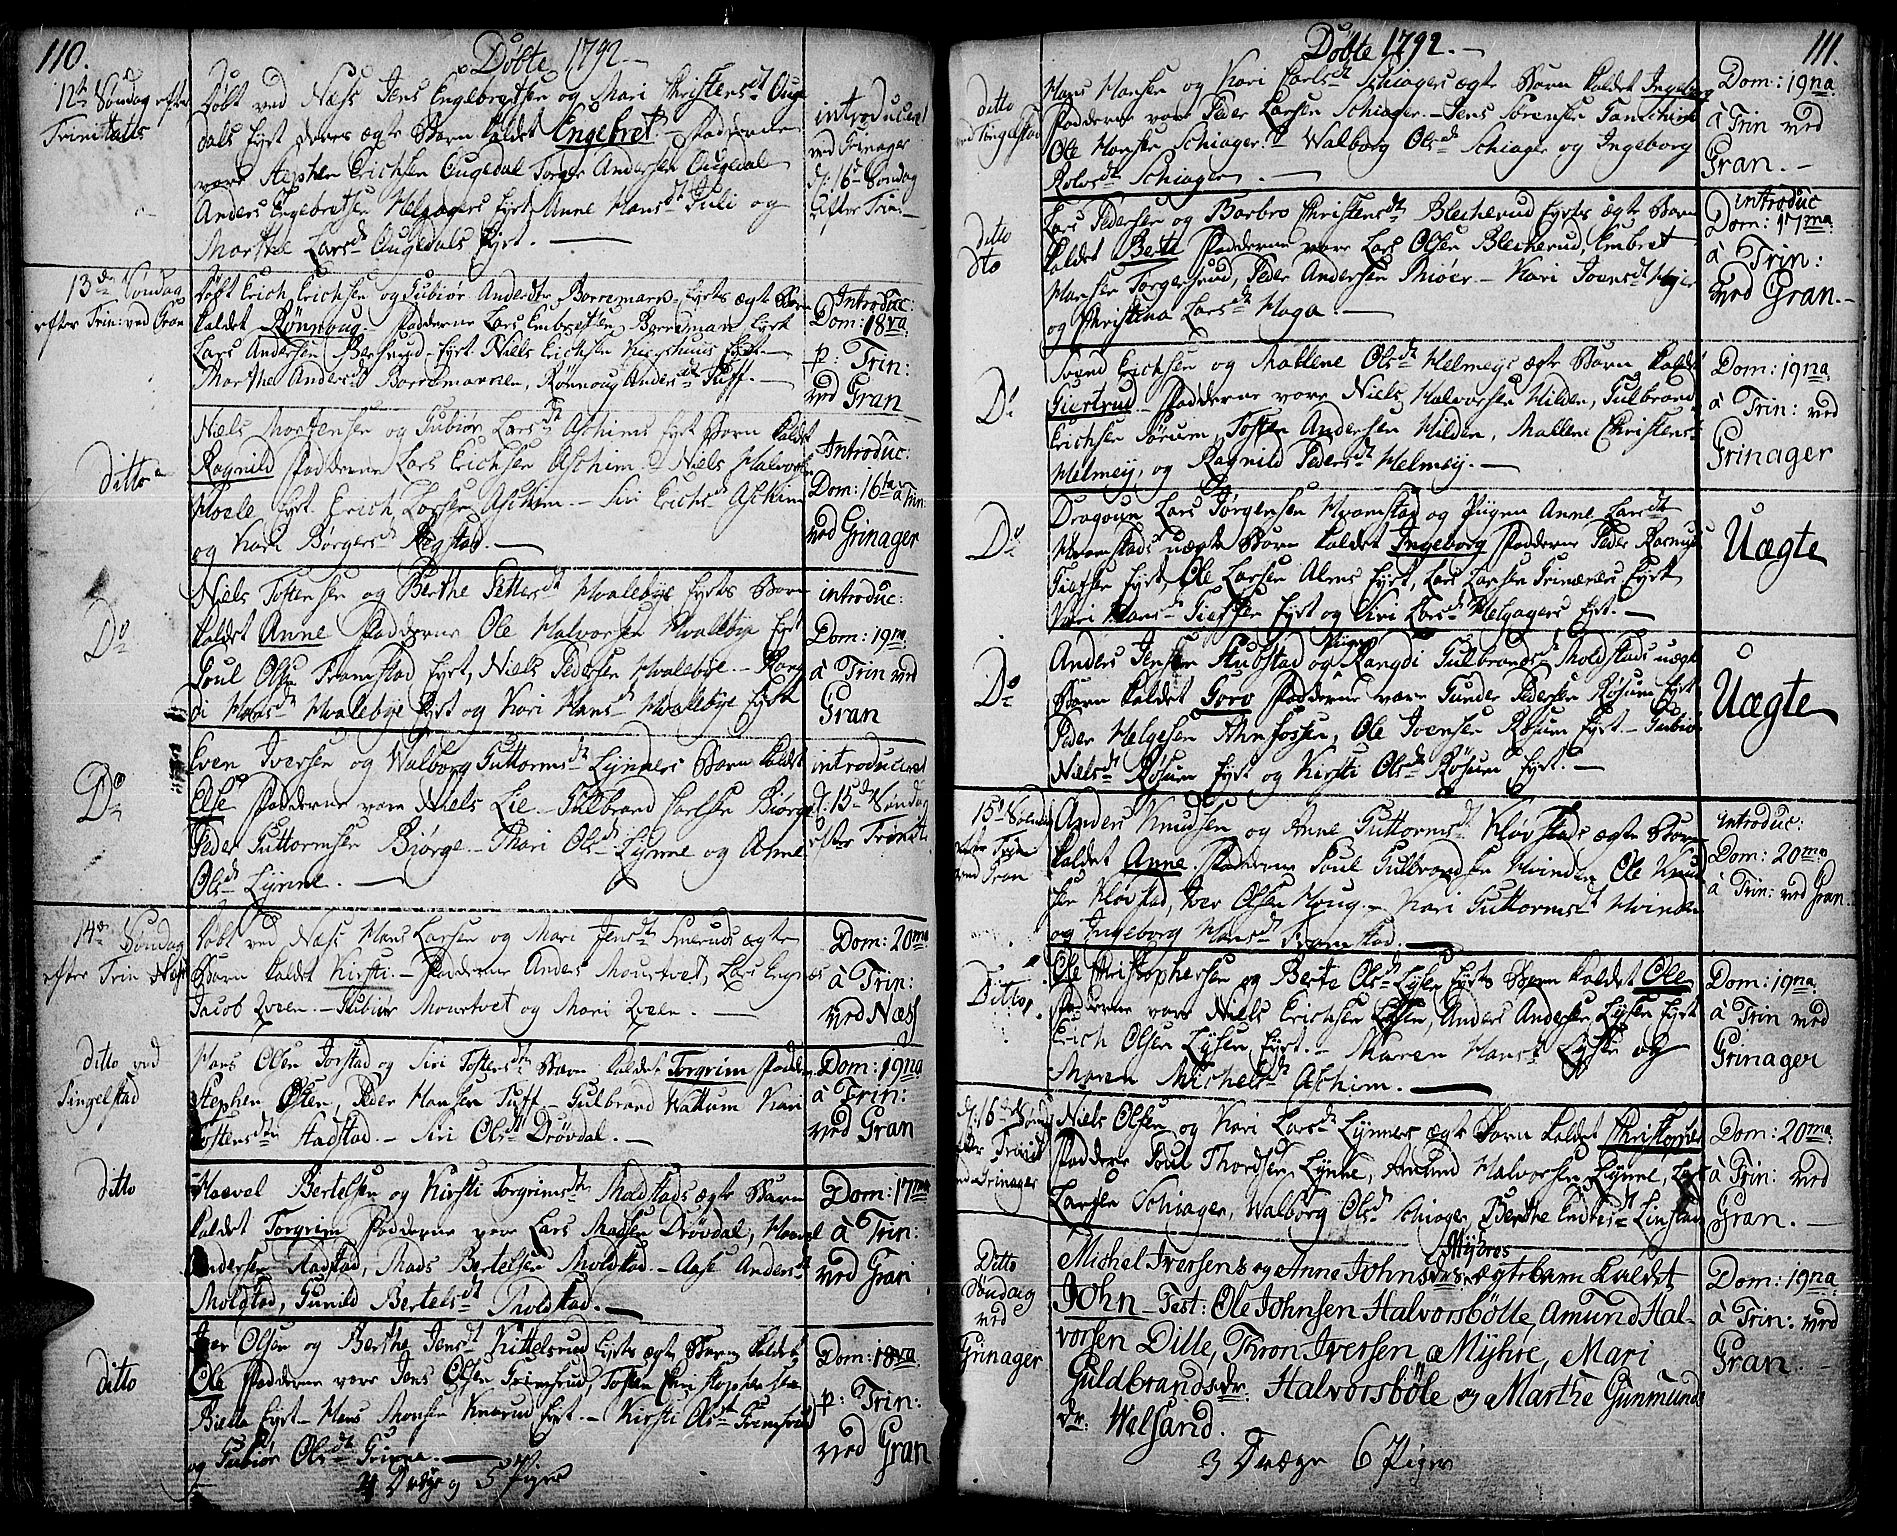 110.
Döbte 1792.
12te Søndag efter
Trinitatis
Døbt ved Næss Jens Engebretsen og Mari Christensdt Auge
dals Eyet deres ægte Barn kaldet Engebret. Fadderne
vare Stephen Erichsen Augedal Torger Andersen Augedal
Anders Engebretsen Helgagers Eyet, Anne Hansdt Juli og
Marthe Larsdt Augedals Eyet.
introduceret
ved Grinager
d: 16de Søndag
efter Trin:
13de Søndag
efter Trin: ved Gran
Døbt Erich Erichsen og Gubiør Andersdtr Borremans Eyets ægte Barn
kaldet Rønnoug. Fadderne Lars Embretsen Borreman Eyet
Lars Andersen Eyet. Niels Erichsen Eyet
Marthe Andersdt Borremannen, Rønnoug Andersdt Tuff.
Introduc:
Dom: 18va
p: Trin:
ved Gran
Ditto
Niels Mortensen og Gubiør Larsdt Aschims Eyet Barn kaldet
Ragnild Fadderne Lars Erichsen Aschim. Niels Halvorsen
Eyet Erich Larsen Aschim. Siri Erichsdt Aschim
og Kari BørgersdtÆgstad.
Introduc:
Dom: 16ta a Trin:
ved Grinager
Do
Niels Tostensen og Berthe Pettersdt Hvalebye Eyets Barn
kaldet Anne Fadderne Ole Halvorsen Hvalebye Eyet
Poul Olsen Framstad Eyet, Niels Pedersen Hvalebye. Rang
di Hansdt Hvalebye Eyet og Kari Hansdt Hvalebye Eyet
introduc:
Dom: 19na
à Trin ved
Gran
Do
Even Iversen og Walborg Guttormsdt Lynnes Barn kaldet
Else Fadderne vare Niels Lie. Gulbrand Carlsen Biørge
Peder Guttormsen Biørge. Mari Olsdt Lynne og Anne
Olsdt Lynne.
introduceret
d: 15de Søndag
efter Trinit:
14de Søndag
efter Trin Næss
Døbt ved Næss Hans Larsen og Mari Jensdt ægte
Barn kaldet Kirsti. Fadderne Anders Mourtvet, Lars Engnes
Jacob Zveen. Gubiør Mourtvet og Mari Zveen.
Dom: 20ma
à Trin:
ved Næss
ditto ved
Tingelstad
Hans Olsen Jorstad og Siri Tostensdt Barn kaldet Torgrim Fadderne
Stephen Olsen, Peder Hansen Tuff. Gulbrand Wattum Kari
Tostensdtr Hadstad. Siri Olsdt Drøvdal.
Dom: 19na
à Trin:
ved Gran
ditto
Haavel Bertelsen og Kirsti Torgrimsdt Moldstads ægte Barn
kaldet Torgrim Fadderne vare Lars Madsen Drövdal, Haavel
Andersen Hadstad, Mads Bertelsen Moldstad. Aase Andersdt
Molgstad, Gunild Bertelsdt Moldstad.
Dom: 17ma
à Trin:
ved Gran
ditto
Iver Olsen og Berthe Jensdt Kittelsrud Eyets ægte Barn kaldet
Ole Fadderne vare Jens Olsen Grimsrud, Tosten Christophersen
Bilden Eyet. Hans Monsen Knarud Eyet. Kirsti Olsdt Grimsrud
og Gubiør Olsdt Grinna.
Dom: 18va
p: Trin:
ved Gran
4 Drenge og 5 Piger
Döbte 1792.
111.
ditto
ved Tingelstad
Hans Hansen og Kari Carlsdt Schiagers ægte Barn kaldet Ingeborg
Fadderne vare Peder Larsen Schiager. Jens Sørensen
Ole Hansen Schiager. Walborg Olsdt Schiager og Ingeborg
Rolvsdt Schiager.
Dom: 19na
à Trin ved
Gran.
ditto
dto
Lars Pedersen og Barbro Christensdt Blecherud Eyets ægte Barn
kaldet Berte Fadderne vare Lars Olsen Blecherud, Embret
Hansen Torgersrud, Peder Andersen. Kari Joensdt
og Christina Larsdt Haga.
introduc
Dom: 17ma
à Trin:
ved Gran.
Do
Svend Erichsen og Mallene Olsdt Helmeys ægte Barn kaldet
Giertrud. Fadderne vare Niels Halvorsen Hilden, Gulbrand
Erichsen Sørum, Tosten Andersen Hilden, Mallene Christensdt
Helmey, og Ragnild Pedersdt Helmey.
Dom: 19na
à Trin: ved
Grinager
Do
Dragoun Lars Jørgensen Hvamstad og Pigen Anne Larsdt
Hvamstads uægte Barn kaldet Ingeborg Fadderne Peder Rasmus
Eyet, Ole Larsen Alms Eyet, Lars Larsen Eyet
Kari Hansdt Eyet og Siri Larsdt Helgagers Eyt.
Uægte
Do
Anders Jensen Stubstad og Pigen Rangdi Gulbrandsdt Moldstads uægte
Barn kaldet Goro Fadderne vare Gunder Pedersen Røsum Eyet
Peder Helgesen, Ole Ivensen Røsum Eyet. Gubiør
Nielsdt Røsum Eyet og Kirsti Olsdt Røsum Eyet.
Uægte
15de Søndag
efter Trin
ved Gran
Anders Knudsen og Anne Guttormsdt Kløvstads ægte Barn
kaldet Anne Fadderne Poul Gulbrandsen Hvinden Ole Knud
sen Kløvstad, Iver Olsen Houg. Kari Guttormsdt Hvinden
og Ingeborg Hansdt Framstad.
introduc:
Dom: 20ma
à Trin: ved Gran.
Ditto
Ole Christophersen og Berte Olsdt Lysen Eyets Barn kaldet Ole
Fadderne vare Niels Erichsen Lysen, Anders Andersen Lysen Eyet
Erich Olsen Lysen Eyet. Maren Hansdt Lysen og
Maren Michelsdt Aschim.
Dom: 19na
à Trin ved
Grinager
d: 16de Sønd:
efter Trinit
ved Grinager
Niels Olsen og Kari Larsdt Lynnes ægte Barn kaldet Christopher
Faddere Poul Thordsen Lynne, Amund Halvorsen Lynne, Lars
Larsen Schiager, Walborg Olsdt Schiager, Berthe Endresdt Linstad
Dom: 20ma
à Trin: ved
Gran.
Ditto
Søndag
ved
Grinager
Michel Iversens og Anne Johnsdrs Myhres ægte barn kaldet
John. Test: Ole Johnsen Halvorsbölle, Amund Hal-
vorsen Dille, Thron Iversen Myhre, Mari
Guldbrandsdr: Halvorsböle og Marthe Gunmunds
dr: Welsand.
Dom: 19na
à Trin: ved
Gran.
3 Drænge 6 Piger